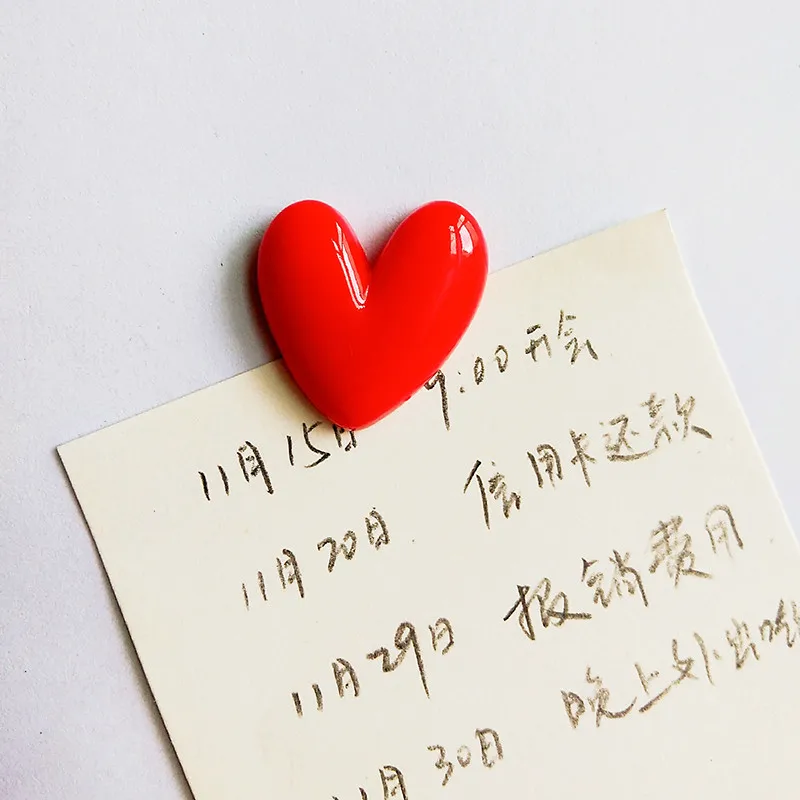 11月15日 9:00 开会
11月20日 信用卡还款
11月29日 报销费用
11月30日 晚上外出吃